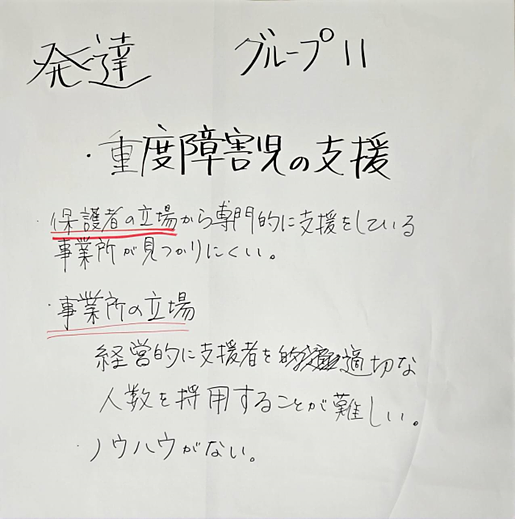 発達 グループ11
・重度障害児の支援
・保護者の立場から専門的に支援をしている
事業所が見つかりにくい。
・事業所の立場
経営的に支援者を適切な
人数を採用することが難しい。
・ノウハウがない。